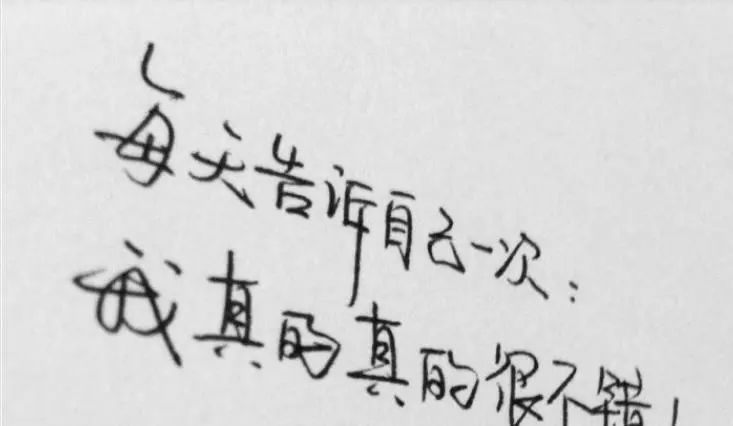 每天告诉自己一次:
我真的真的很不错!